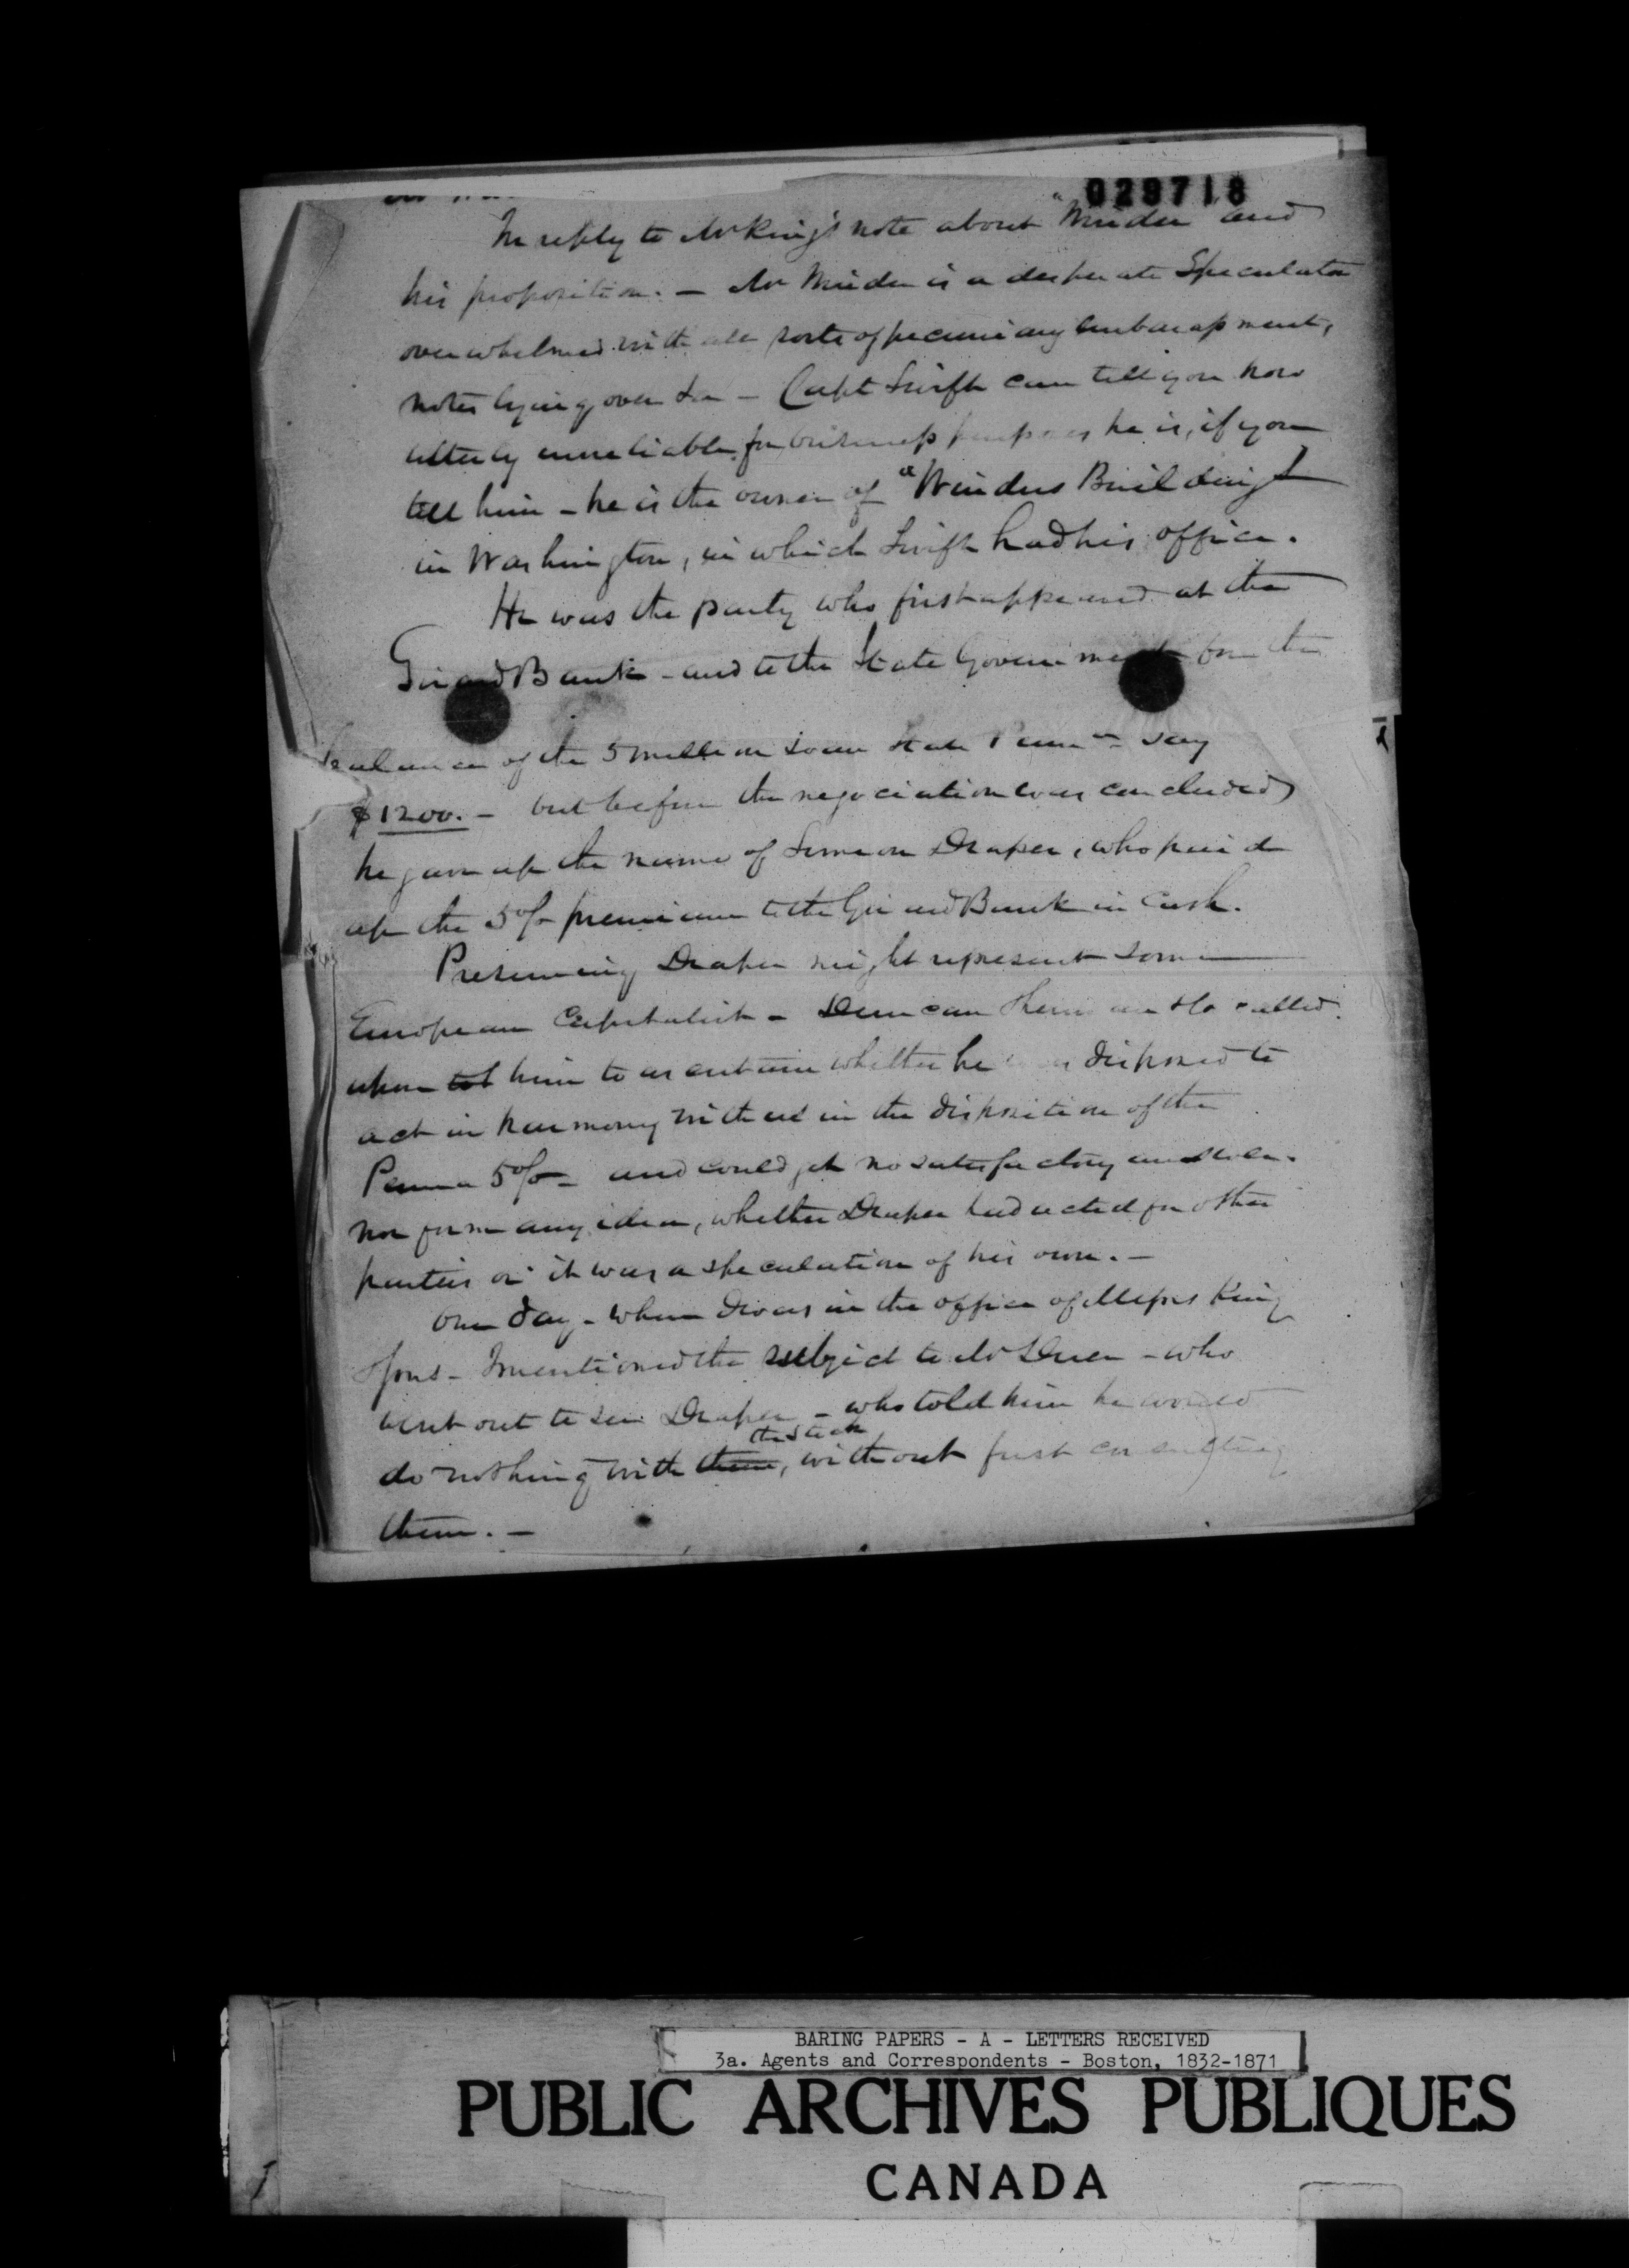 029718
In reply to Mr King's note about "Winder" and
his proposition. — Mr Winder is a desperate Speculator
overwhelmed with all sorts of pecuniary embarassment,
notes lying over &c — Capt Swift can tell you how
utterly unreliable for business purposes he is, if you
tell him — he is the owner of "Winders Building"
in Washington, in which Swift had his office.
He was the party who first appeared at the
Girard Bank — and to the State Government for the
balance of the 5 million loan State Penna say
$1200. — but before the negociation was concluded
he gave up the name of Simeon Draper, who paid
up the 5% premium to the Girard Bank in Cash.
Presuming Draper might represent some
European Capitalist — Duncan Sherman & Co called
upon him to ascertain whether he was disposed to
act in harmony with us in the disposition of the
Penna 5% — and could get no satisfactory answer.
nor form any idea, whether Draper had acted for other
parties or it was a speculation of his own. —
One day — when I was in the office of Messrs King
& Sons — I mentioned the subject to Mr Duer — who
went out to see Draper — who told him he would
the stock
do nothing with them, without first consulting
them. —
BARING PAPERS - A - LETTERS RECEIVED
3a. Agents and Correspondents - Boston, 1832-1871
PUBLIC ARCHIVES PUBLIQUES
CANADA